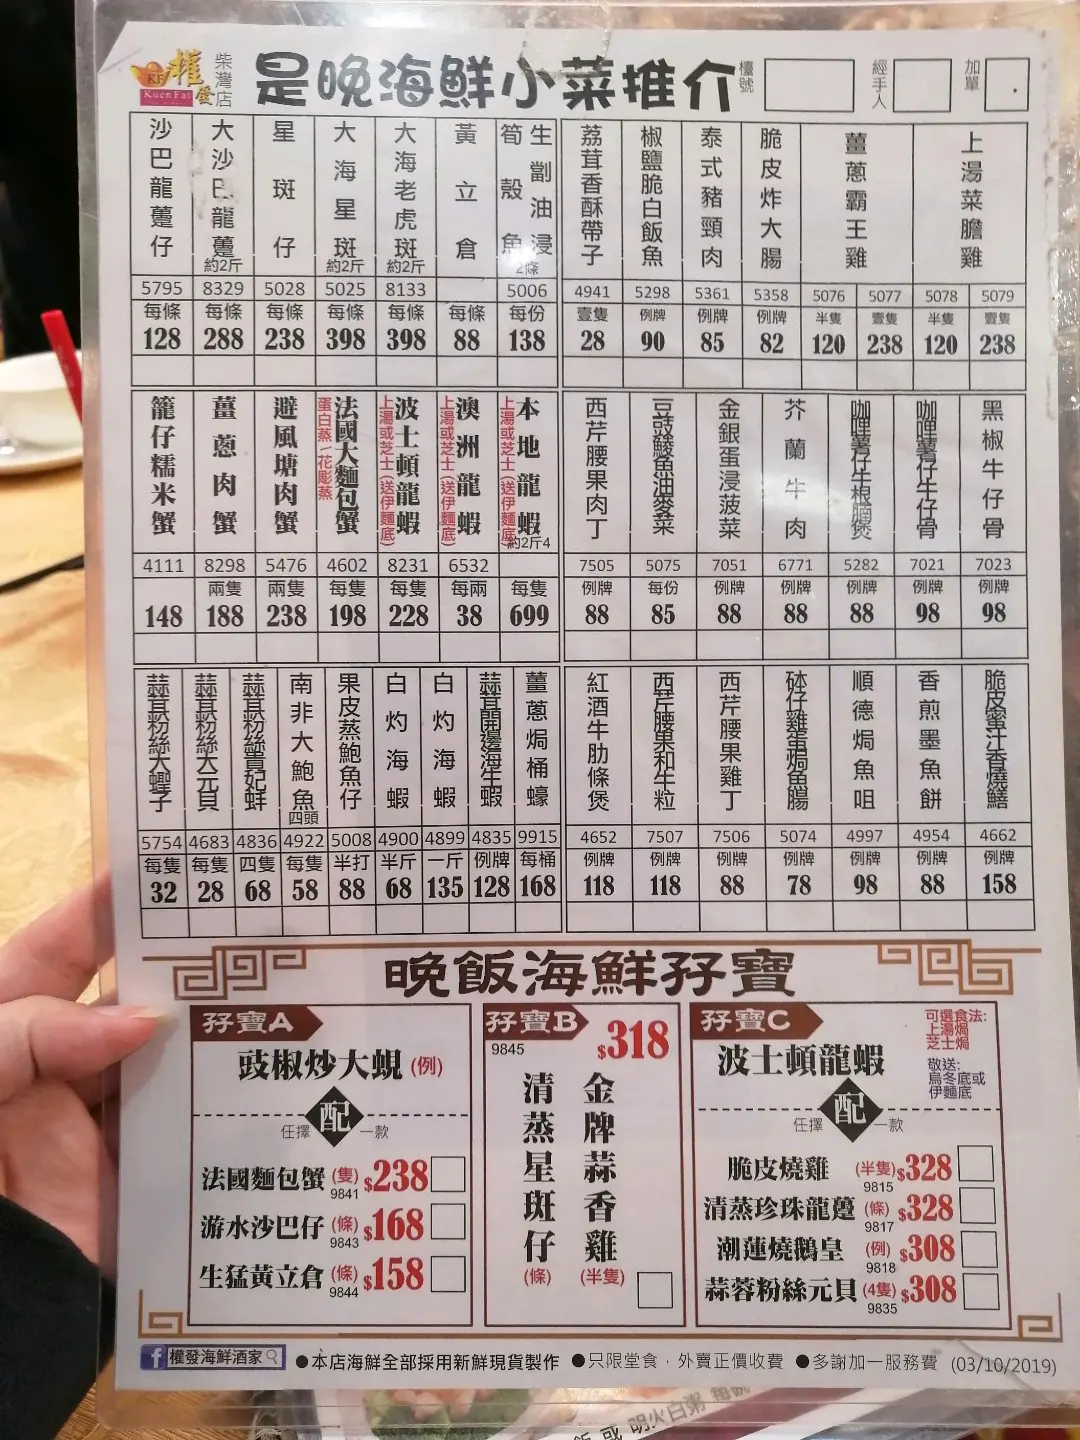 權發
KF
Kuen Fat
柴灣店
是晚海鮮小菜推介
檯號
經手人
加單
沙巴龍躉仔
5795
每條
128
大沙巴龍躉
約2斤
8329
每條
288
星斑仔
5028
每條
238
大海星斑
約2斤
5025
每條
398
大海老虎斑
約2斤
8133
每條
398
黃立倉
每條
88
生劏油浸
筍殼魚
2條
5006
每份
138
荔茸香酥帶子
4941
壹隻
28
椒鹽脆白飯魚
5298
例牌
90
泰式豬頸肉
5361
例牌
85
脆皮炸大腸
5358
例牌
82
薑蔥霸王雞
5076
半隻
120
5077
壹隻
238
上湯菜膽雞
5078
半隻
120
5079
壹隻
238
籠仔糯米蟹
4111
148
薑蔥肉蟹
8298
兩隻
188
避風塘肉蟹
5476
兩隻
238
法國大麵包蟹
蛋白蒸/花彫蒸
4602
每隻
198
波士頓龍蝦
上湯或芝士(送伊麵底)
8231
每隻
228
澳洲龍蝦
上湯或芝士(送伊麵底)
6532
每兩
38
本地龍蝦
上湯或芝士(送伊麵底)
約2斤4
每隻
699
西芹腰果肉丁
7505
例牌
88
豆豉鯪魚油麥菜
5075
每份
85
金銀蛋浸菠菜
7051
例牌
88
芥蘭牛肉
6771
例牌
88
咖喱薯仔牛根腩煲
5282
例牌
88
咖喱薯仔牛仔骨
7021
例牌
98
黑椒牛仔骨
7023
例牌
98
蒜茸粉絲大蟶子
5754
每隻
32
蒜茸粉絲大元貝
4683
每隻
28
蒜茸粉絲貴妃蚌
4836
四隻
68
南非大鮑魚
四頭
4922
每隻
58
果皮蒸鮑魚仔
5008
半打
88
白灼海蝦
4900
半斤
68
白灼海蝦
4899
一斤
135
蒜茸開邊海生蝦
4835
例牌
128
薑蔥焗桶蠔
9915
每桶
168
紅酒牛肋條煲
4652
例牌
118
西芹腰果和牛粒
7507
例牌
118
西芹腰果雞丁
7506
例牌
88
砵仔雞蛋焗魚腸
5074
例牌
78
順德焗魚咀
4997
例牌
98
香煎墨魚餅
4954
例牌
88
脆皮蜜汁香燒鱔
4662
例牌
158
晚飯海鮮孖寶
孖寶A
豉椒炒大蜆(例)
任擇 配 一款
法國麵包蟹(隻)$238
9841
游水沙巴仔(條)$168
9843
生猛黃立倉(條)$158
9844
孖寶B
9845
$318
金牌蒜香雞
(半隻)
清蒸星斑仔
(條)
孖寶C
波士頓龍蝦
可選食法:
上湯焗
芝士焗
敬送:
烏冬底或
伊麵底
任擇 配 一款
脆皮燒雞(半隻)$328
9815
清蒸珍珠龍躉(條)$328
9817
潮蓮燒鵝皇(例)$308
9818
蒜蓉粉絲元貝(4隻)$308
9835
f 權發海鮮酒家 ●本店海鮮全部採用新鮮現貨製作 ●只限堂食，外賣正價收費 ●多謝加一服務費 (03/10/2019)
飯 或 明火白粥 每號